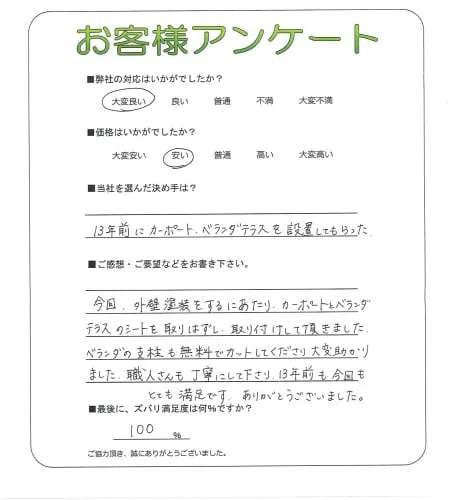 お客様アンケート
■弊社の対応はいかがでしたか？
大変良い 良い 普通 不満 大変不満
■価格はいかがでしたか？
大変安い 安い 普通 高い 大変高い
■当社を選んだ決め手は？
13年前にカーポート、ベランダテラスを設置してもらった
■ご感想・ご要望などをお書き下さい。
今回、外壁塗装をするにあたり、カーポートとベランダ
テラスのシートを取りはずし、取り付けして頂きました。
ベランダの支柱も無料でカットしてくださり大変助かり
ました。職人さんも丁寧にして下さり、13年前も今回も
とても満足です。ありがとうございました。
■最後に、ズバリ満足度は何%ですか？
100 %
ご協力頂き、誠にありがとうございました。